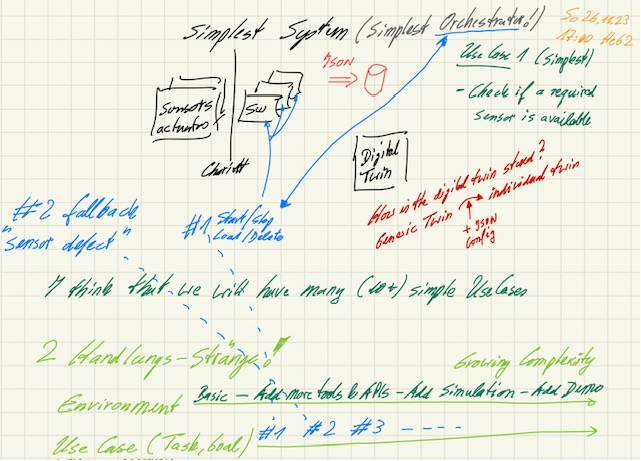 Simplest System (Simplest Orchestrator!)
So 26.11.23
17:00
Use Case 1 (Simplest)
- Check if a required
Sensor is available
JSON
Sensors
actuators
SW
Chariott
Digital
Twin
How is the digital twin stored?
Generic Twin → individual twin
+ JSON
Config
#2 fallback
"Sensor defect"
#1 Start/Stop
Load/Delete
I think that we will have many (10+) simple UseCases
2 Handlungs-Stränge!
Growing Complexity
Environment Basic - Add more tools & APIs - Add Simulation - Add Demo
Use Case (Task, Goal) #1 #2 #3 ----